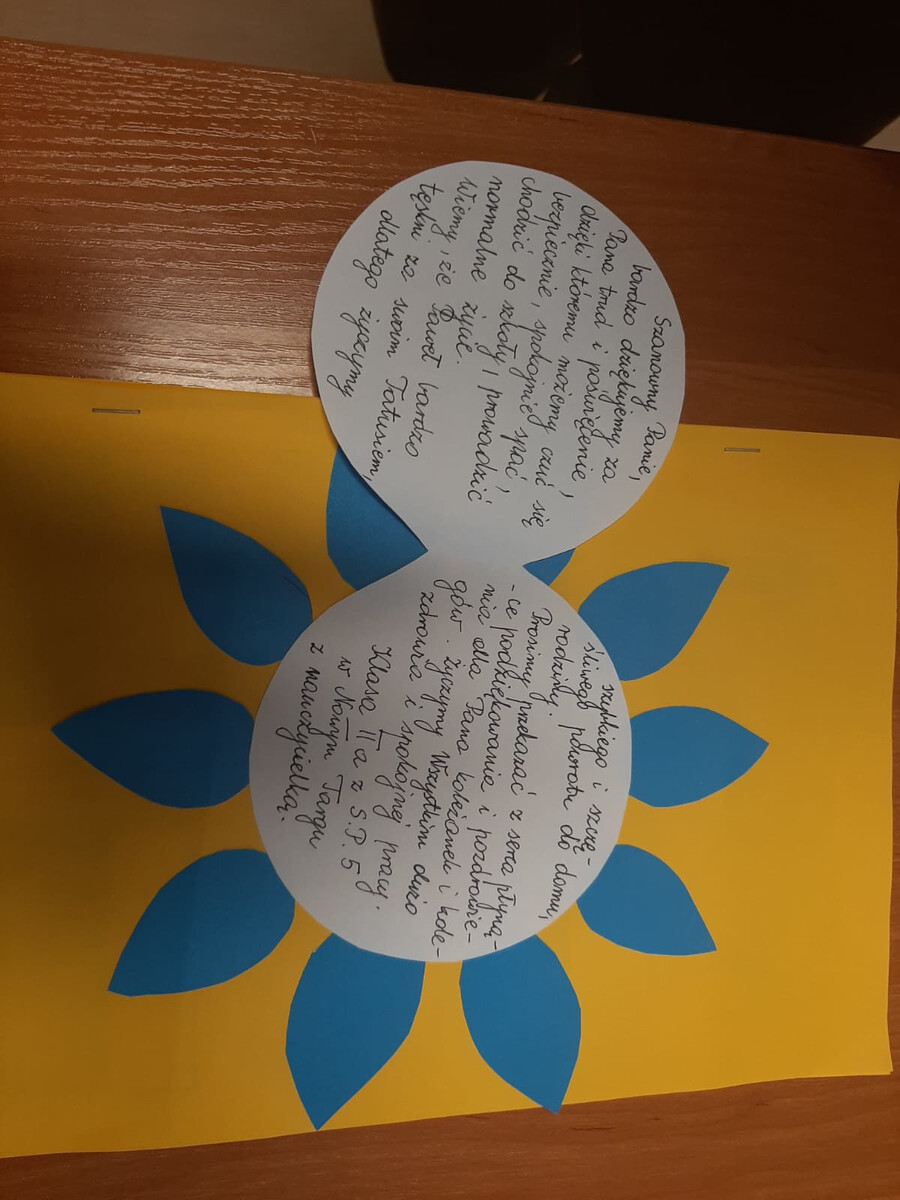 Szanowny Panie,
bardzo dziękujemy za
Pana trud i poświęcenie,
dzięki któremu możemy czuć się
bezpiecznie, spokojnie spać,
chodzić do szkoły i prowadzić
normalne życie.
Wiemy, że Paweł bardzo
tęskni za swoim Tatusiem,
dlatego życzymy
szybkiego i szczę-
śliwego powrotu do domu,
rodziny.
Prosimy przekazać z serca płyną-
-ce podziękowania i pozdrowie-
nia dla Pana koleżanek i kole-
gów. Życzymy Wszystkim dużo
zdrowia i spokojnej pracy.
Klasa II a z S.P. 5
w Nowym Targu
z nauczycielką.